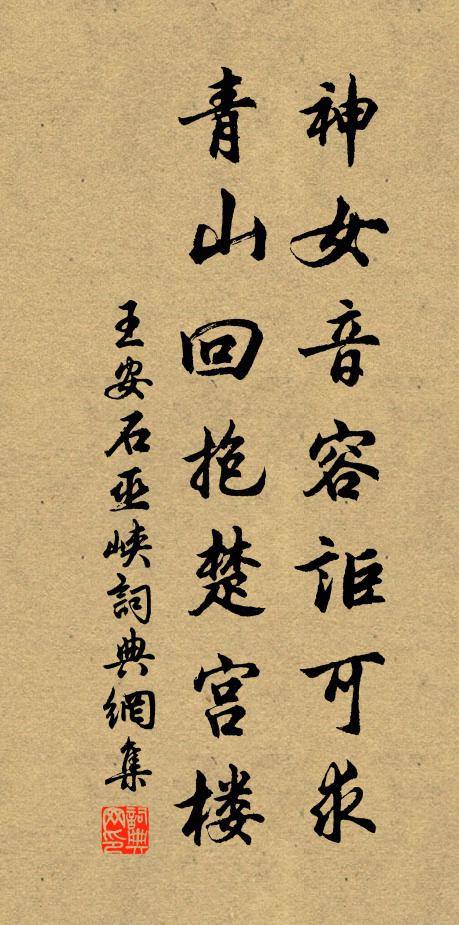 神女音容詎可求
青山回抱楚宫楼
王安石巫峡詞典網集
詞典网印